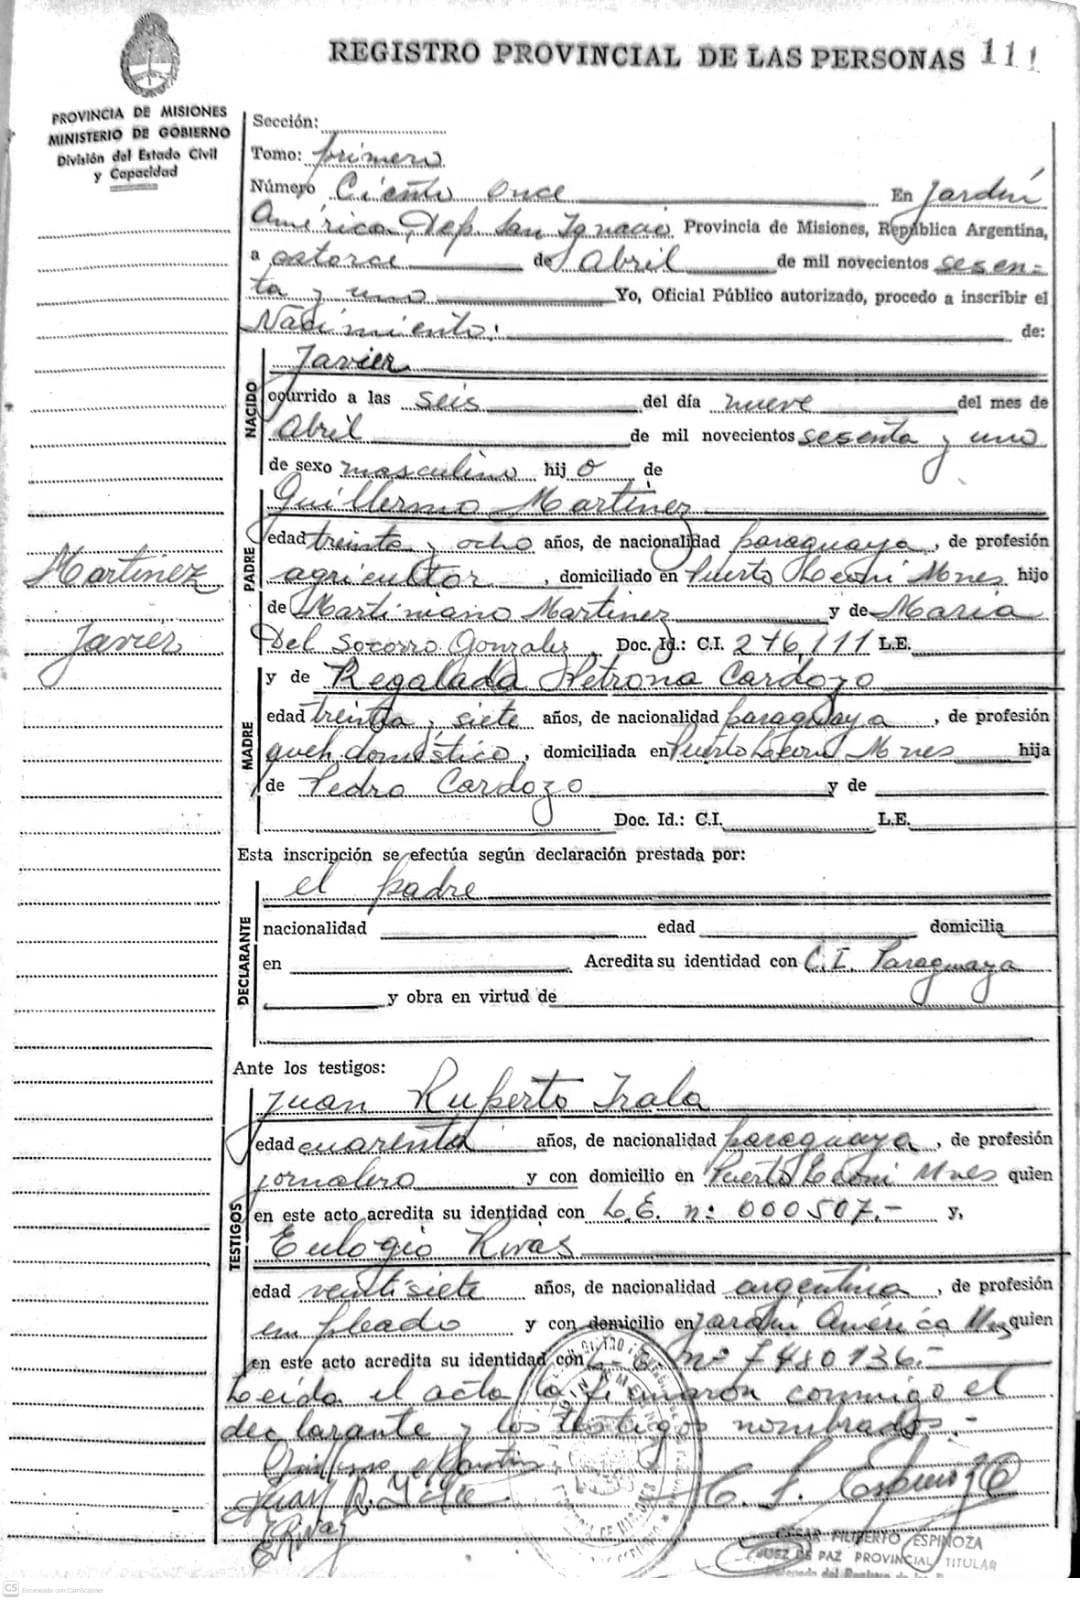 REGISTRO PROVINCIAL DE LAS PERSONAS 111
PROVINCIA DE MISIONES
MINISTERIO DE GOBIERNO
División del Estado Civil
y Capacidad
Sección:
Tomo: primero
Número Ciento once En Jardín
América, Dep. San Ignacio Provincia de Misiones, República Argentina,
a catorce de Abril de mil novecientos sesen-
ta y uno Yo, Oficial Público autorizado, procedo a inscribir el
Nacimiento: de:
NACIDO
Javier
ocurrido a las seis del día nueve del mes de
Abril de mil novecientos sesenta y uno
de sexo masculino hij o de
PADRE
Guillermo Martinez
edad treinta y ocho años, de nacionalidad paraguaya, de profesión
agricultor, domiciliado en Puerto Leoni Mnes hijo
de Martiniano Martinez y de Maria
Del Socorro Gonzalez Doc. Id.: C.I. 276,111 L.E.
Martinez
Javier
MADRE
y de Regalada Petrona Cardozo
edad treinta y siete años, de nacionalidad paraguaya, de profesión
queh. doméstico, domiciliada en Puerto Leoni Mnes hija
de Pedro Cardozo y de
Doc. Id.: C.I. L.E.
Esta inscripción se efectúa según declaración prestada por:
DECLARANTE
el padre
nacionalidad edad domicilia
en Acredita su identidad con C.I. Paraguaya
y obra en virtud de
Ante los testigos:
TESTIGOS
Juan Ruperto Irala
edad cuarenta años, de nacionalidad paraguaya, de profesión
jornalero y con domicilio en Puerto Leoni Mnes quien
en este acto acredita su identidad con L.E. n: 000507.- y,
Eulogio Rivas
edad veintisiete años, de nacionalidad argentina, de profesión
empleado y con domicilio en Jardín América quien
en este acto acredita su identidad con L.E. nº 7480136.-
Leída el acta la firmaron conmigo el
declarante y los testigos nombrados.-
E Rivas
C. F. Espinoza
CESAR FILIBERTO ESPINOZA
JUEZ DE PAZ PROVINCIAL TITULAR
CS Escaneado con CamScanner